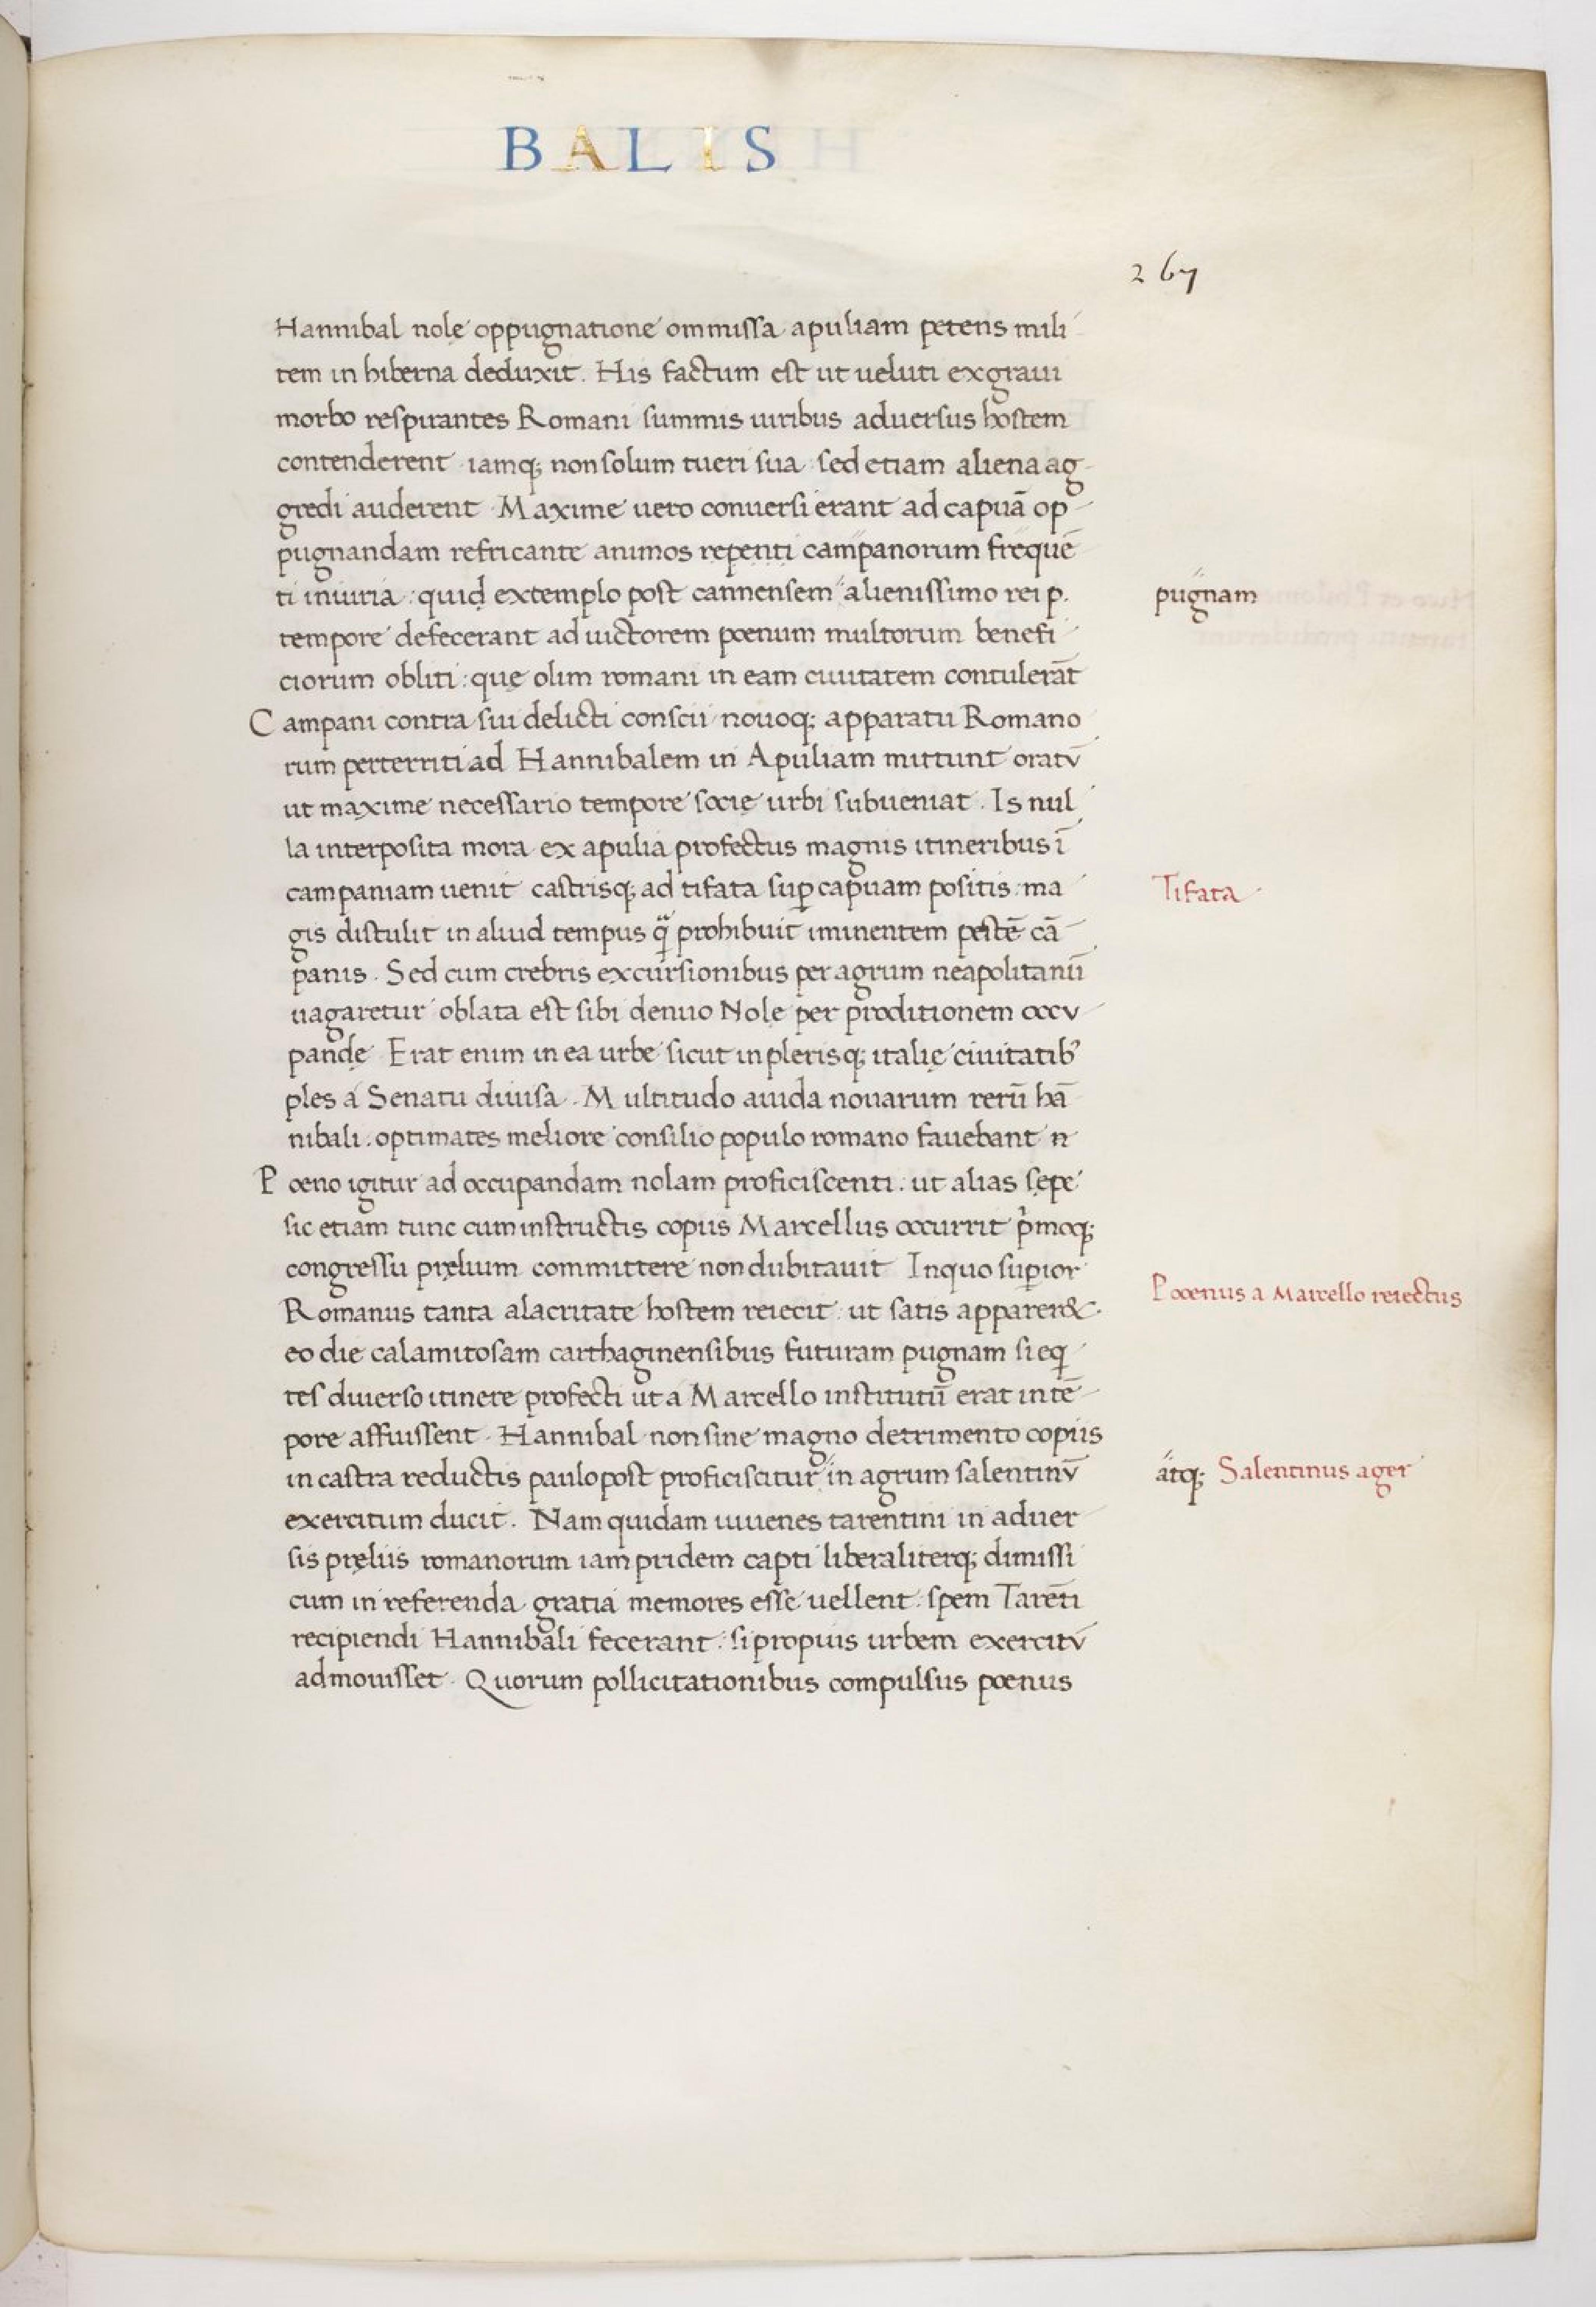 BALIS
267
Hannibal nolę oppugnatione ommissa apuliam petens mili
tem in hiberna deduxit. His factum est ut ueluti ex graui
morbo respirantes Romani summis uiribus aduersus hostem
contenderent iamq; non solum tueri sua sed etiam aliena ag
gredi auderent. Maxime uero conuersi erant ad capuā op
pugnandam refricante animos repenti campanorum frequē
ti iniuria: quid extemplo post cannensem" alienissimo rei p.
"pugnam
tempore defecerant ad uictorem pœnum multorum benefi
ciorum obliti: quę olim romani in eam ciuitatem contulerāt
Campani contra sui delicti conscii nouoq; apparatu Romano
rum perterriti ad Hannibalem in Apuliam mittunt oratū
ut maxime necessario tempore socię urbi subueniat. Is nul
la interposita mora ex apulia profectus magnis itineribus ī
campaniam uenit castrisq; ad tifata sup̱ capuam positis: ma
Tifata
gis distulit in aliud tempus q̄ prohibuit iminentem pestē cā
panis. Sed cum crebris excursionibus per agrum neapolitanū
uagaretur oblata est sibi denuo Nolę per proditionem occu
pandę Erat enim in ea urbe sicut in plerisq; italię ciuitatibꝰ
plęs a Senatu diuisa. Multitudo auida nouarum rerū hā
nibali. optimates meliore consilio populo romano fauebant
Poeno igitur ad occupandam nolam proficiscenti. ut alias sępe
sic etiam tunc cum instructis copiis Marcellus occurrit p̍moq;
congressu pręlium committere non dubitauit In quo sup̱ior
Romanus tanta alacritate hostem reiecit: ut satis apparer&
Pooenus a Marcello reiectus
eo die calamitosam carthaginensibus futuram pugnam si eq̇
tes diuerso itinere profecti ut a Marcello institutū erat in tē
pore affuissent. Hannibal non sine magno detrimento copiis
in castra reductis paulo post proficiscitur" in agrum salentinū
"atq; Salentinus ager
exercitum ducit. Nam quidam iuuenes tarentini in aduer
sis pręliis romanorum iam pridem capti liberaliterq; dimissi
cum in referenda gratia memores esse uellent: spem Tarēti
recipiendi Hannibali fecerant: si propius urbem exercitū
admouisset. Quorum pollicitationibus compulsus pœnus